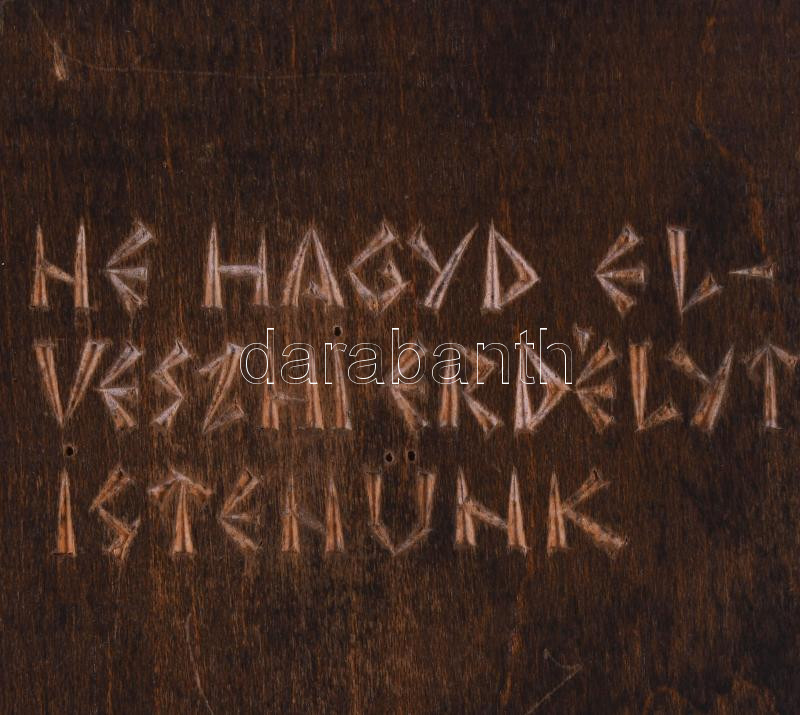 NE HAGYD EL-
VESZNI ERDÉLYT
ISTENÜNK
darabanth